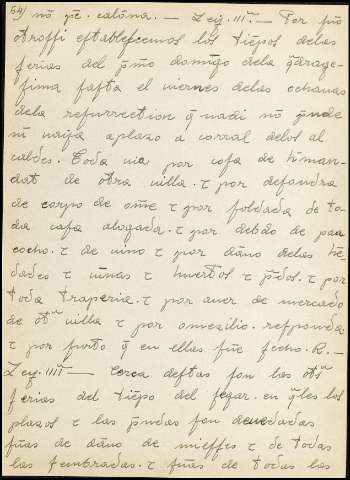 54) nō pẽ. calōnia. — Leẏ. IIIᵃ. — Por fuo
otroffi eftableſcemos los tiẽpos delas
ferias del pⁱmo domīgo dela q̃rage-
fima fafta el viernes delas ochauas
dela refurrection q̃ nadi nō pⁱnde
ni uaẏa aplazo a corral delos al
caldes. Toda uia por cofa de h̃man-
dat de otra uilla. ⁊ por defondra
de corpo de om̃e ⁊ por foldada ⁊ de to-
da cafa alogada. ⁊ por debdo de pan
cocho. ⁊ de uino ⁊ por dãno delas h̃e-
dades ⁊ uinnas ⁊ huertos ⁊ p̃dos. ⁊ por
toda traperia. ⁊ por auer de mercado
de otᵃ uilla ⁊ por omezilio. refponda.
⁊ por furto q̃ en ellas fue fecho. R. —
Leẏ. IIIIᵃ — Cerca deftas fon las otᵃs
ferias del tiẽpo del fegar. en q̃les los
plazos ⁊ las pⁱndas fon deuedadas
fuãs de dãno de mieffes ⁊ de todas
las fembradas. ⁊ fuãs de todas las